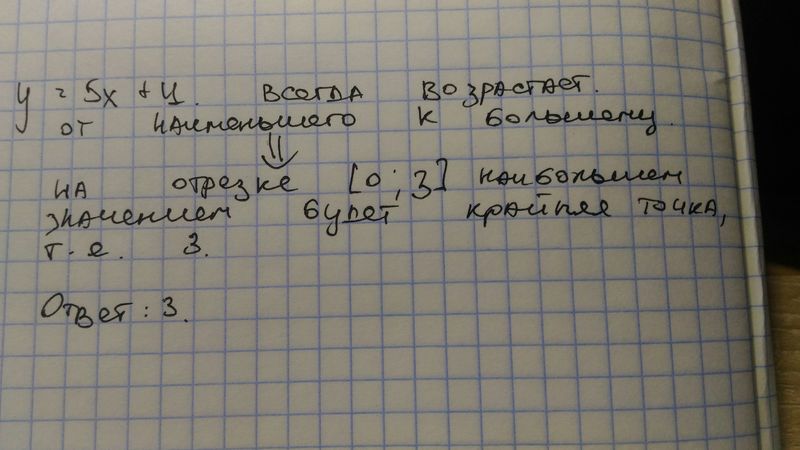 y = 5x + 4. всегда возрастает.
от наименьшего к большему.
⇓
на отрезке [0; 3] наибольшем
значением будет крайняя точка,
т.е. 3.
Ответ: 3.